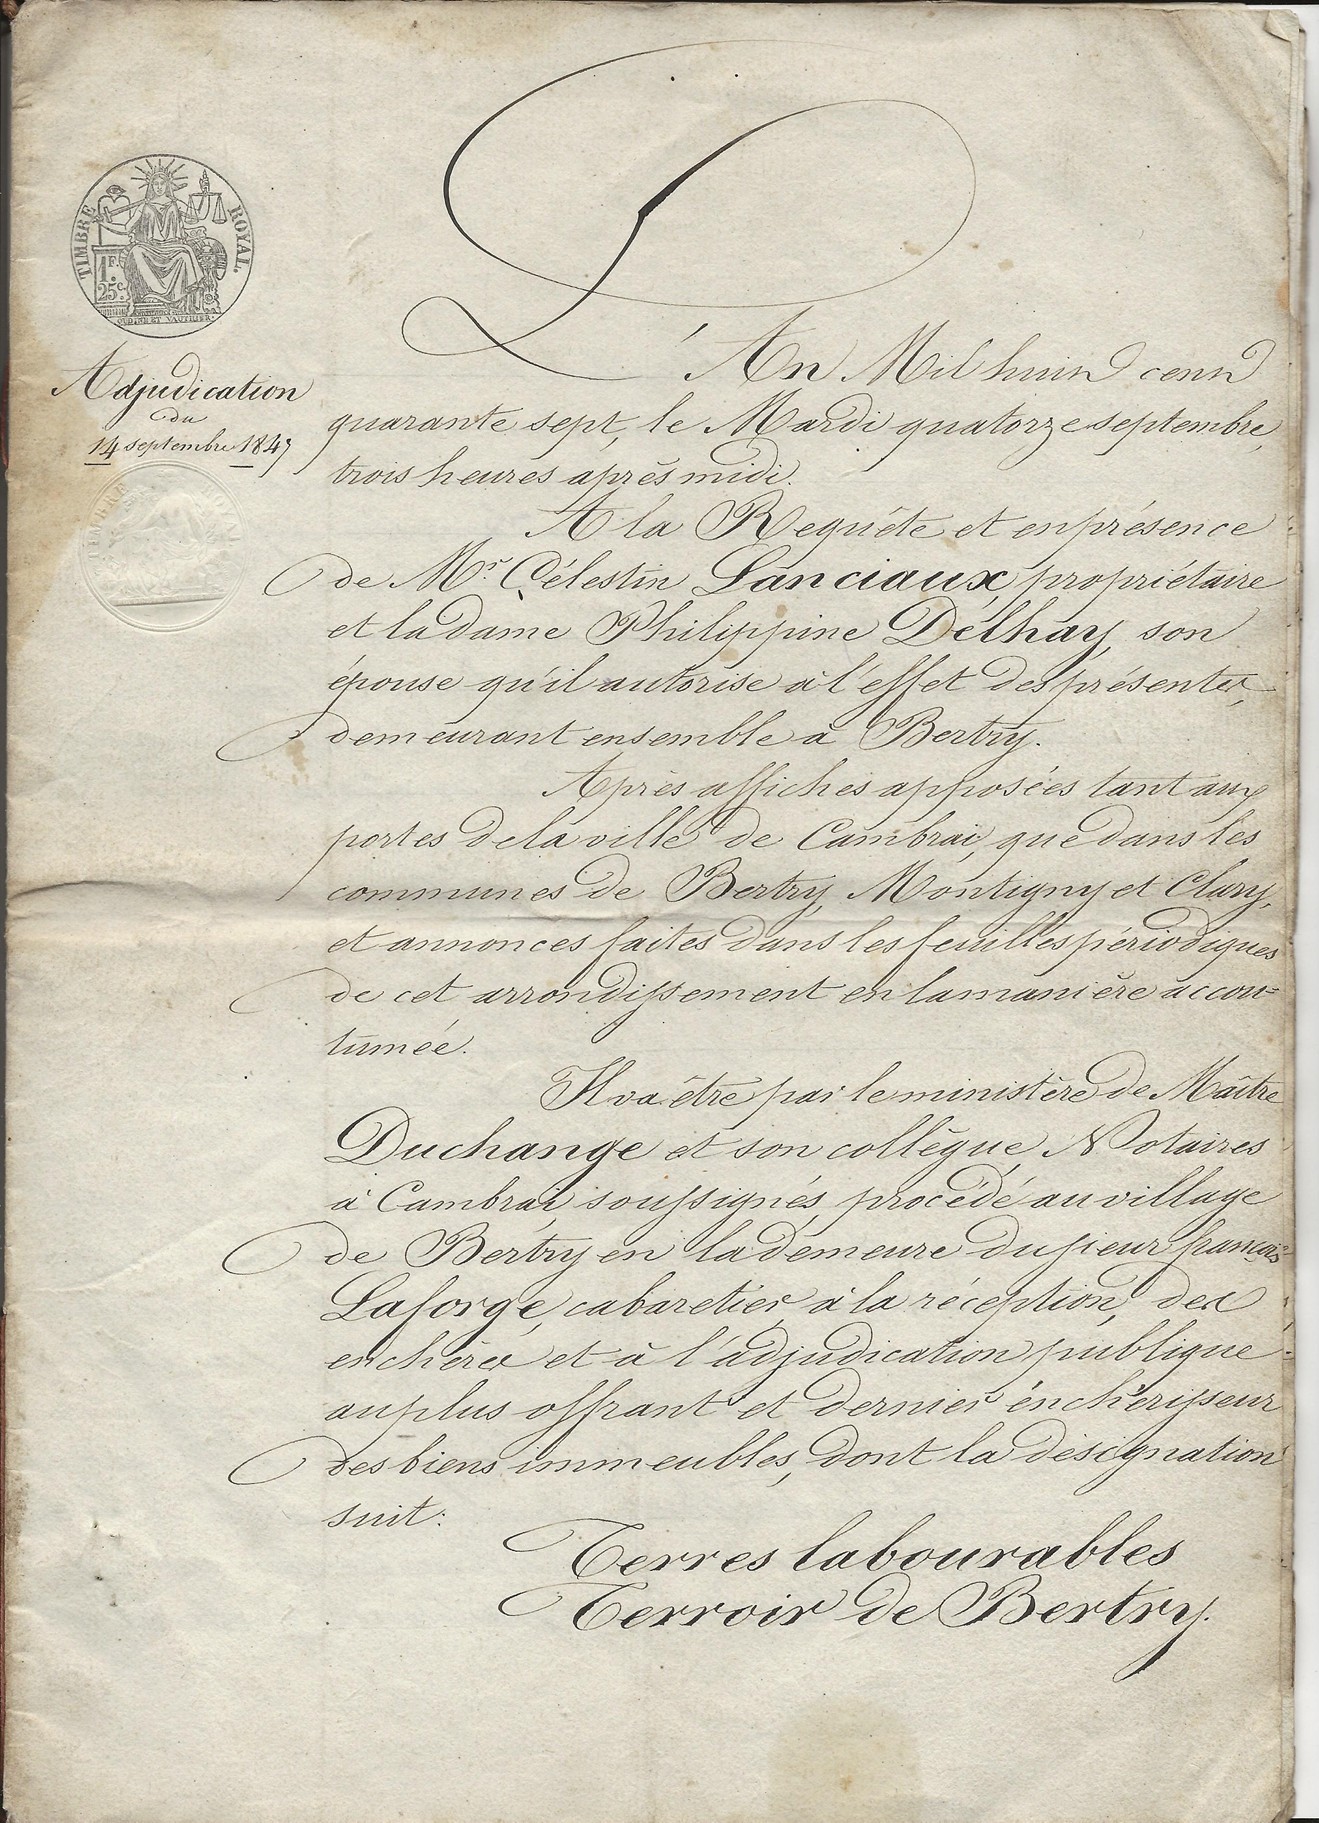 TIMBRE ROYAL.
1F.
25c.
OUDINÉ ET VAUTHIER.
Adjudication
du
14 septembre 1847
TIMBRE ROYAL
L'An Mil huit cent
quarante sept, le Mardi quatorze septembre,
trois heures après midi.
A la Requête et en présence
de Mr. Célestin Lanciaux, propriétaire
et la dame Philippine Délhay, son
épouse qu'il autorise à l'effet des présentes,
demeurant ensemble à Bertry.
Après affiches apposées tant aux
portes de la ville de Cambrai, que dans les
communes de Bertry, Montigny et Clary,
et annonces faites dans les feuilles périodiques
de cet arrondissement en la manière accou-
tumée.
Il va être par le ministère de Maître
Duchange et son collègue, Notaires
à Cambrai, soussignés, procédé au village
de Bertry en la demeure du sieur françois
Laforge, cabaretier, à la réception, des
enchères et à l'adjudication publique
au plus offrant et dernier enchérisseur
des biens immeubles, dont la désignation
suit:
Terres labourables
Terroir de Bertry.